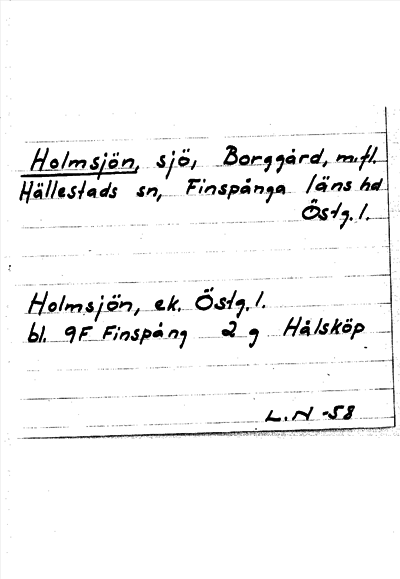 Holmsjön, sjö, Borggård, m.fl.
Hällestads sn, Finspånga läns hd
Östg. l.
Holmsjön, ek. Östg. l.
bl. 9F Finspång 2 g Hålsköp
L.N -58